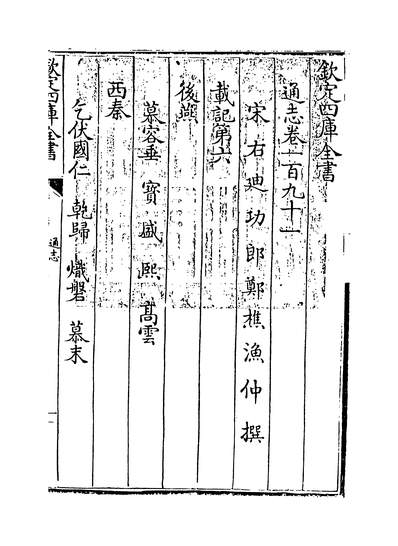 欽定四庫全書
通志卷一百九十一
宋右迪功郎鄭樵漁仲撰
載記第六
後燕
慕容垂 寶 盛 熙 高雲
西秦
乞伏國仁 乾歸 熾磐 慕末
欽定四庫全書
通志
一